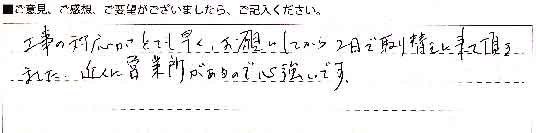 ■ご意見、ご感想、ご要望がございましたら、ご記入ください。
工事の対応がとても早く、お願いしてから2日で取り替えに来て頂き
ました。近くに営業所があるので心強いです。